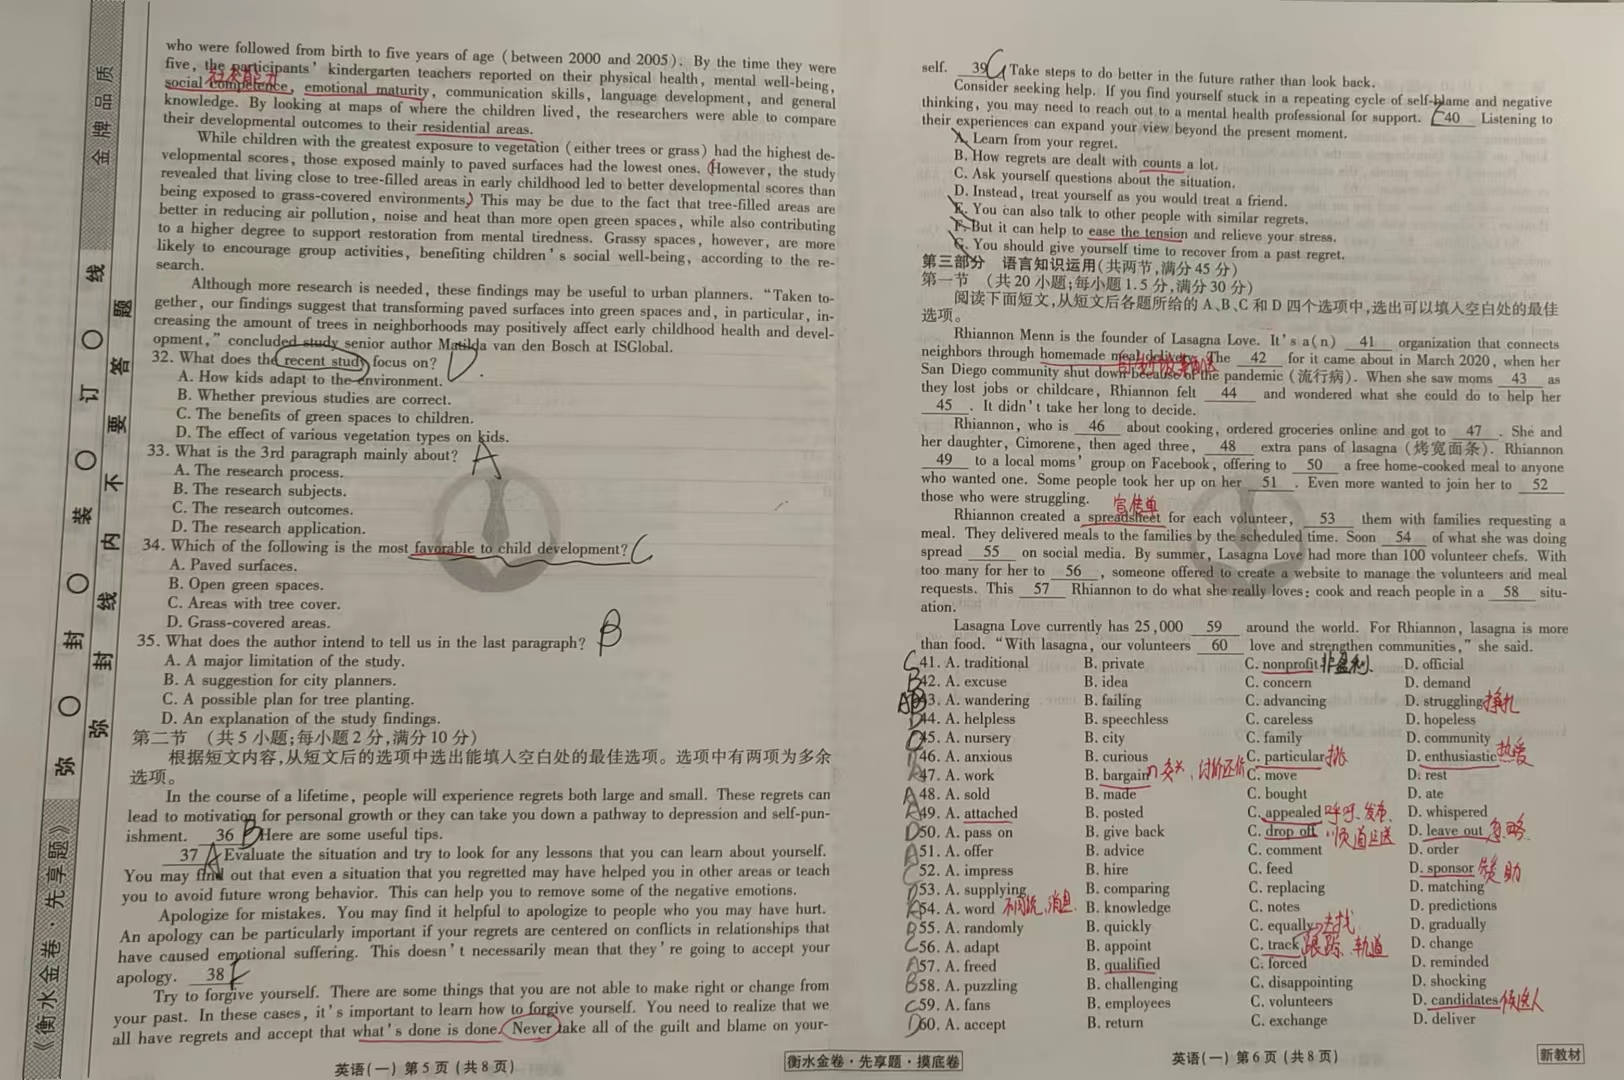 who were followed from birth to five years of age (between 2000 and 2005). By the time they were
five, the participants' kindergarten teachers reported on their physical health, mental well-being,
社交能力
social competence, emotional maturity, communication skills, language development, and general
knowledge. By looking at maps of where the children lived, the researchers were able to compare
their developmental outcomes to their residential areas.
While children with the greatest exposure to vegetation (either trees or grass) had the highest de-
velopmental scores, those exposed mainly to paved surfaces had the lowest ones. However, the study
revealed that living close to tree-filled areas in early childhood led to better developmental scores than
being exposed to grass-covered environments. This may be due to the fact that tree-filled areas are
better in reducing air pollution, noise and heat than more open green spaces, while also contributing
to a higher degree to support restoration from mental tiredness. Grassy spaces, however, are more
likely to encourage group activities, benefiting children's social well-being, according to the re-
search.
Although more research is needed, these findings may be useful to urban planners. "Taken to-
gether, our findings suggest that transforming paved surfaces into green spaces and, in particular, in-
creasing the amount of trees in neighborhoods may positively affect early childhood health and devel-
opment," concluded study senior author Matilda van den Bosch at ISGlobal.
32. What does the recent study focus on? D
A. How kids adapt to the environment.
B. Whether previous studies are correct.
C. The benefits of green spaces to children.
D. The effect of various vegetation types on kids.
33. What is the 3rd paragraph mainly about? A
A. The research process.
B. The research subjects.
C. The research outcomes.
D. The research application.
34. Which of the following is the most favorable to child development? C
A. Paved surfaces.
B. Open green spaces.
C. Areas with tree cover.
D. Grass-covered areas.
35. What does the author intend to tell us in the last paragraph? B
A. A major limitation of the study.
B. A suggestion for city planners.
C. A possible plan for tree planting.
D. An explanation of the study findings.
第二节 (共5小题;每小题2分,满分10分)
根据短文内容,从短文后的选项中选出能填入空白处的最佳选项。选项中有两项为多余
选项。
In the course of a lifetime, people will experience regrets both large and small. These regrets can
lead to motivation for personal growth or they can take you down a pathway to depression and self-pun-
ishment. 36 B Here are some useful tips.
37 A Evaluate the situation and try to look for any lessons that you can learn about yourself.
You may find out that even a situation that you regretted may have helped you in other areas or teach
you to avoid future wrong behavior. This can help you to remove some of the negative emotions.
Apologize for mistakes. You may find it helpful to apologize to people who you may have hurt.
An apology can be particularly important if your regrets are centered on conflicts in relationships that
have caused emotional suffering. This doesn't necessarily mean that they're going to accept your
apology. 38 F
Try to forgive yourself. There are some things that you are not able to make right or change from
your past. In these cases, it's important to learn how to forgive yourself. You need to realize that we
all have regrets and accept that what's done is done. Never take all of the guilt and blame on your-
英语(一) 第5页(共8页)
self. 39 G Take steps to do better in the future rather than look back.
Consider seeking help. If you find yourself stuck in a repeating cycle of self-blame and negative
thinking, you may need to reach out to a mental health professional for support. E 40 Listening to
their experiences can expand your view beyond the present moment.
A. Learn from your regret.
B. How regrets are dealt with counts a lot.
C. Ask yourself questions about the situation.
D. Instead, treat yourself as you would treat a friend.
E. You can also talk to other people with similar regrets.
F. But it can help to ease the tension and relieve your stress.
G. You should give yourself time to recover from a past regret.
第三部分 语言知识运用(共两节,满分45分)
第一节 (共20小题;每小题1.5分,满分30分)
阅读下面短文,从短文后各题所给的A、B、C和D四个选项中,选出可以填入空白处的最佳
选项。
Rhiannon Menn is the founder of Lasagna Love. It's a(n) 41 organization that connects
neighbors through homemade meal delivery. The 42 for it came about in March 2020, when her
San Diego community shut down because of the pandemic (流行病). When she saw moms 43 as
they lost jobs or childcare, Rhiannon felt 44 and wondered what she could do to help her
45 . It didn't take her long to decide.
Rhiannon, who is 46 about cooking, ordered groceries online and got to 47 . She and
her daughter, Cimorene, then aged three, 48 extra pans of lasagna (烤宽面条). Rhiannon
49 to a local moms' group on Facebook, offering to 50 a free home-cooked meal to anyone
who wanted one. Some people took her up on her 51 . Even more wanted to join her to 52
those who were struggling.
宣传单
Rhiannon created a spreadsheet for each volunteer, 53 them with families requesting a
meal. They delivered meals to the families by the scheduled time. Soon 54 of what she was doing
spread 55 on social media. By summer, Lasagna Love had more than 100 volunteer chefs. With
too many for her to 56 , someone offered to create a website to manage the volunteers and meal
requests. This 57 Rhiannon to do what she really loves: cook and reach people in a 58 situ-
ation.
Lasagna Love currently has 25,000 59 around the world. For Rhiannon, lasagna is more
than food. "With lasagna, our volunteers 60 love and strengthen communities," she said.
C 41. A. traditional B. private C. nonprofit 非盈利 D. official
B 42. A. excuse B. idea C. concern D. demand
43. A. wandering B. failing C. advancing D. struggling 挣扎
D 44. A. helpless B. speechless C. careless D. hopeless
D 45. A. nursery B. city C. family D. community
46. A. anxious B. curious C. particular 挑 D. enthusiastic 热爱
47. A. work B. bargain 讨价还价 C. move D. rest
A 48. A. sold B. made C. bought D. ate
A 49. A. attached B. posted C. appealed 呼吁、发布 D. whispered
D 50. A. pass on B. give back C. drop off 顺道送 D. leave out 忽略
A 51. A. offer B. advice C. comment D. order
C 52. A. impress B. hire C. feed D. sponsor 赞助
D 53. A. supplying B. comparing C. replacing D. matching
A 54. A. word 消息 B. knowledge C. notes D. predictions
55. A. randomly B. quickly C. equally D. gradually
C 56. A. adapt B. appoint C. track 跟踪、轨道 D. change
A 57. A. freed B. qualified C. forced D. reminded
B 58. A. puzzling B. challenging C. disappointing D. shocking
C 59. A. fans B. employees C. volunteers D. candidates 候选人
D 60. A. accept B. return C. exchange D. deliver
衡水金卷·先享题·摸底卷
英语(一) 第6页(共8页)
新教材
金牌品质
弥 封 装 订 线
弥 封 线 内 不 要 答 题
《衡水金卷·先享题》